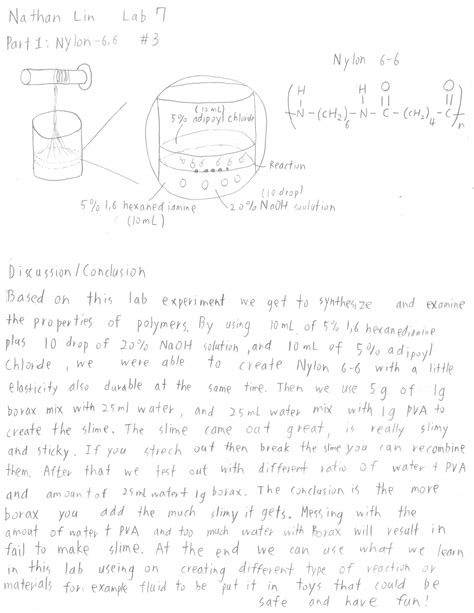 Nathan Lin Lab 7
Part 1: Nylon-6,6 #3
Nylon 6-6
H H O O
N-(CH2)6-N-C-(CH2)4-C
n
(10mL)
5% adipoyl chloride
Reaction
5% 1,6 hexanediamine
(10mL)
(10 drop)
20% NaOH soulution
Discussion/Conclusion
Based on this lab experiment we get to synthesize and examine
the properties of polymers. By using 10mL of 5% 1,6 hexanediamine
plus 10 drop of 20% NaOH solution, and 10 mL of 5% adipoyl
Chloride, we were able to create Nylon 6-6 with a little
elasticity also durable at the same time. Then we use 5g of 1g
borax mix with 25ml water, and 25ml water mix with 1g PVA to
create the slime. The slime came out great, is really slimy
and sticky. If you strech out then break the slime you can recombine
them. After that we test out with different ratio of water + PVA
and amount of 25ml water + 1g borax. The conclusion is the more
borax you add the much slimy it gets. Messing with the
amout of water + PVA and too much water with Borax will result in
fail to make slime. At the end we can use what we learn
in this lab useing on creating different type of reaction or
materials for example fluid to be put it in toys that could be
safe and have fun!